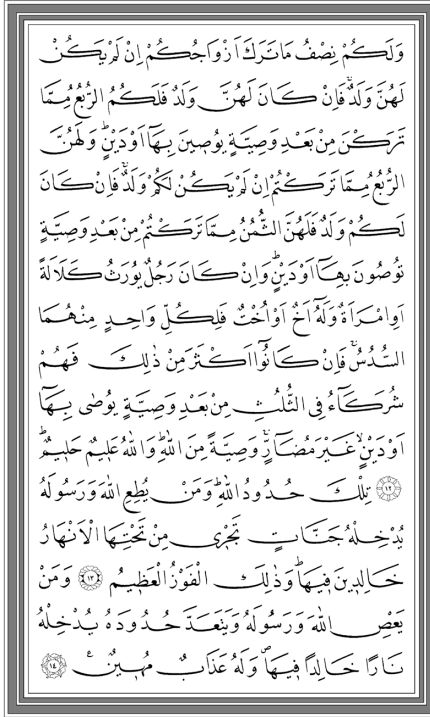 وَلَكُمْ نِصْفُ مَا تَرَكَ اَزْوَاجُكُمْ اِنْ لَمْ يَكُنْ
لَهُنَّ وَلَدٌۚ فَاِنْ كَانَ لَهُنَّ وَلَدٌ فَلَكُمُ الرُّبُعُ مِمَّا
تَرَكْنَ مِنْ بَعْدِ وَصِيَّةٍ يُوصِينَ بِهَٓا اَوْ دَيْنٍۜ وَلَهُنَّ
الرُّبُعُ مِمَّا تَرَكْتُمْ اِنْ لَمْ يَكُنْ لَكُمْ وَلَدٌۚ فَاِنْ كَانَ
لَكُمْ وَلَدٌ فَلَهُنَّ الثُّمُنُ مِمَّا تَرَكْتُمْ مِنْ بَعْدِ وَصِيَّةٍ
تُوصُونَ بِهَٓا اَوْ دَيْنٍۜ وَاِنْ كَانَ رَجُلٌ يُورَثُ كَلَالَةً
اَوِ امْرَاَةٌ وَلَهُٓ اَخٌ اَوْ اُخْتٌ فَلِكُلِّ وَاحِدٍ مِنْهُمَا
السُّدُسُۚ فَاِنْ كَانُٓوا اَكْثَرَ مِنْ ذٰلِكَ فَهُمْ
شُرَكَٓاءُ فِي الثُّلُثِ مِنْ بَعْدِ وَصِيَّةٍ يُوصٰى بِهَٓا
اَوْ دَيْنٍۙ غَيْرَ مُضَٓارٍّۚ وَصِيَّةً مِنَ اللّٰهِۜ وَاللّٰهُ عَلِيمٌ حَلِيمٌۜ
﴿١٢﴾ تِلْكَ حُدُودُ اللّٰهِۜ وَمَنْ يُطِعِ اللّٰهَ وَرَسُولَهُ
يُدْخِلْهُ جَنَّاتٍ تَجْرِي مِنْ تَحْتِهَا الْاَنْهَارُ
خَالِدِينَ فِيهَاۜ وَذٰلِكَ الْفَوْزُ الْعَظِيمُ ﴿١٣﴾ وَمَنْ
يَعْصِ اللّٰهَ وَرَسُولَهُ وَيَتَعَدَّ حُدُودَهُ يُدْخِلْهُ
نَارًا خَالِدًا فِيهَاۖ وَلَهُ عَذَابٌ مُهِينٌ۟ ﴿١٤﴾